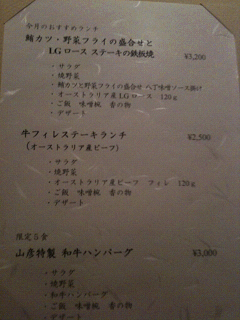 今月のおすすめランチ
鮪カツ・野菜フライの盛合せと
LGロース ステーキの鉄板焼 ¥3,200
・サラダ
・焼野菜
・鮪カツと野菜フライの盛合せ 八丁味噌ソース掛け
・オーストラリア産LGロース 120g
・ご飯 味噌椀 香の物
・デザート
牛フィレステーキランチ ¥2,500
（オーストラリア産ビーフ）
・サラダ
・焼野菜
・オーストラリア産ビーフ フィレ 120g
・ご飯 味噌椀 香の物
・デザート
限定5食
山彦特製 和牛ハンバーグ ¥3,000
・サラダ
・焼野菜
・和牛ハンバーグ
・ご飯 味噌椀 香の物
・デザート